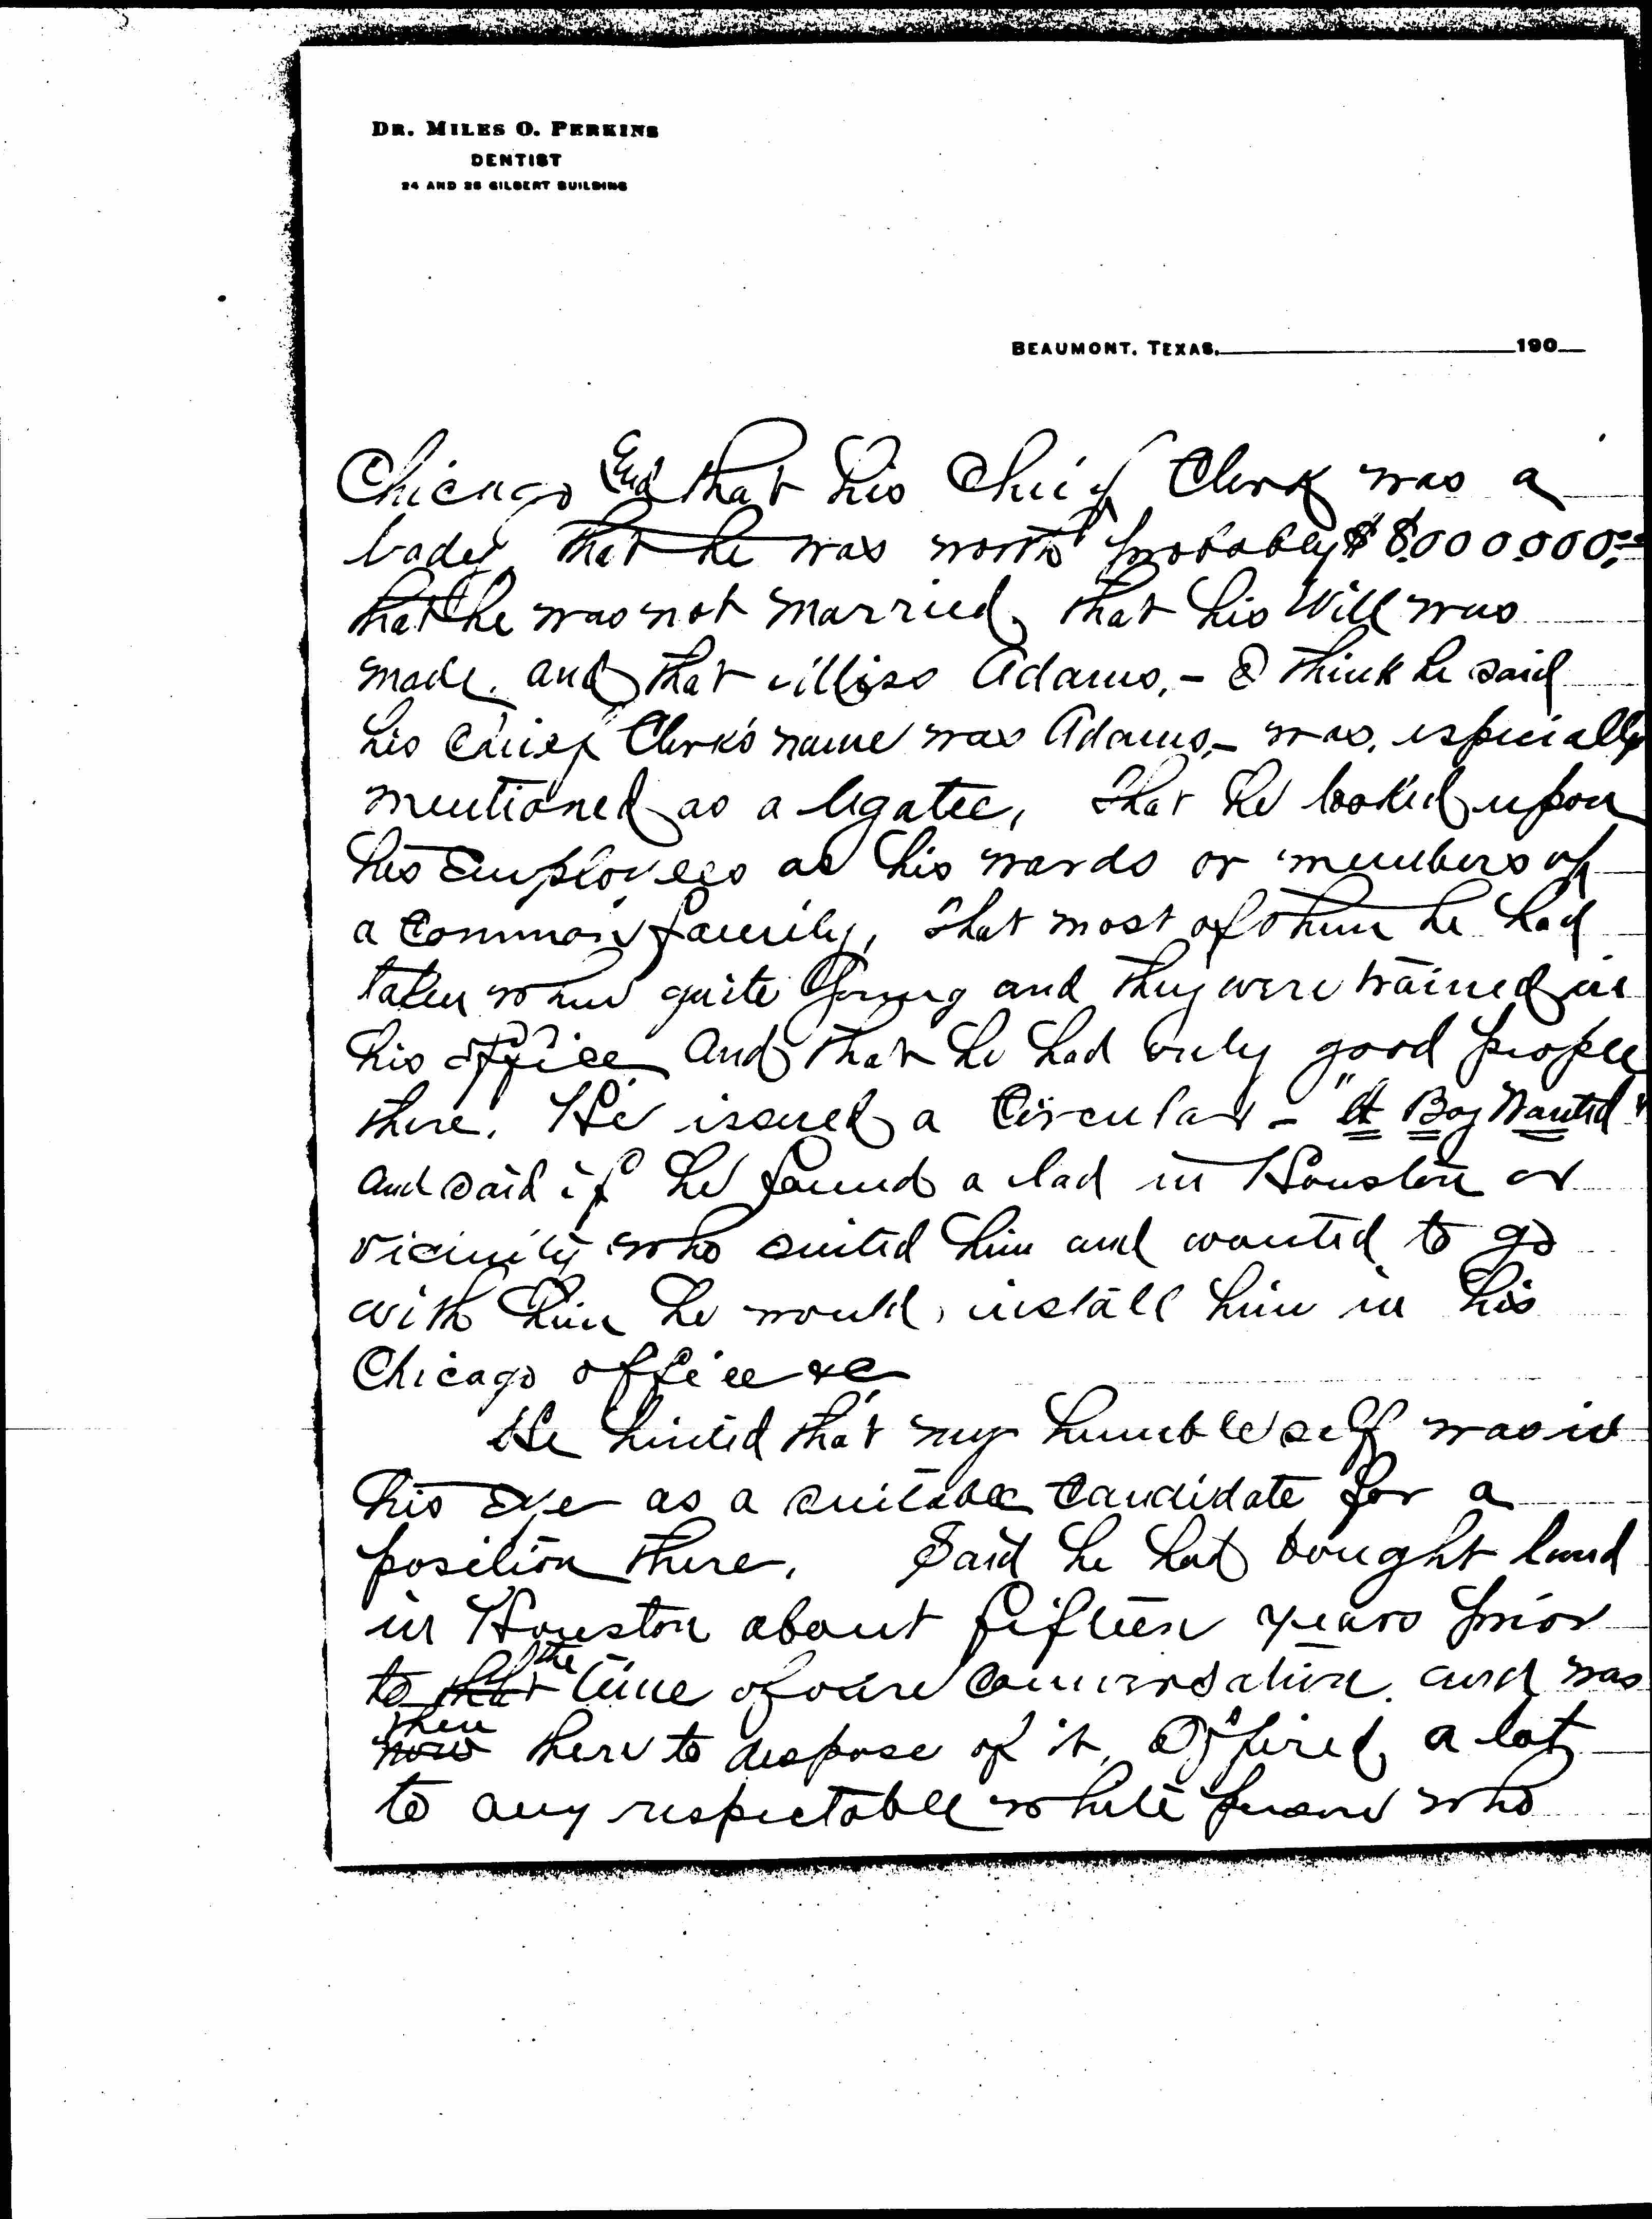 DR. MILES O. PERKINS
DENTIST
24 AND 25 GILBERT BUILDING
BEAUMONT, TEXAS, 190
Chicago and that his Chief Clerk was a
lady, that he was worth probably $8,000,000.00
that he was not married, that his Will was
made, and that Miss Adams, - I think he said
his Chief Clerk's name was Adams, - was, especially
mentioned as a legatee, that he looked upon
his Employees as his wards or members of
a Common family, that most of them he had
taken when quite Young and they were trained in
his office and that he had only good people
there. He issued a Circular - "A Boy Wanted"
and said if he found a lad in Houston or
vicinity who suited him and wanted to go
with him he would, install him in his
Chicago office &c
He hinted that my humble self was in
his Eye as a suitable Candidate for a
position there. Said he had bought land
in Houston about fifteen years prior
to that the time of our Conversation, and was
now then here to dispose of it, Offered a lot
to any respectable white person who